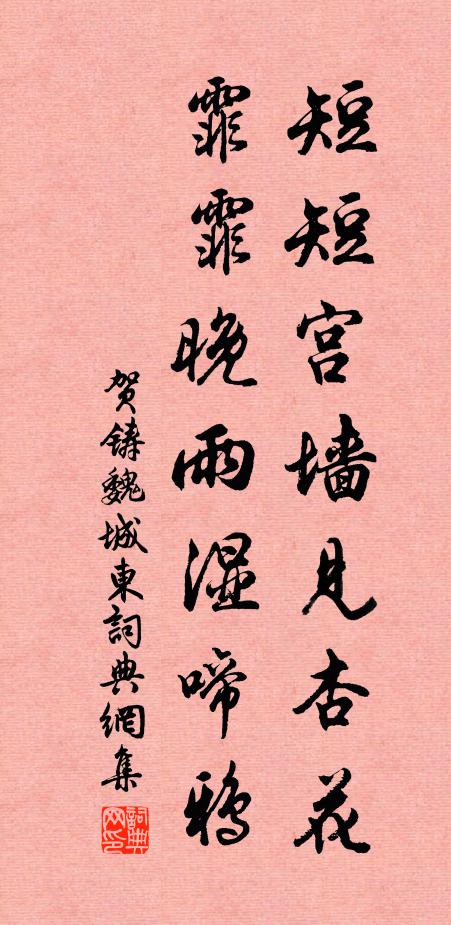 短短宫墙見杏花
霏霏晚雨湿啼鴉
贺鋳魏城東詞典網集
詞典网印